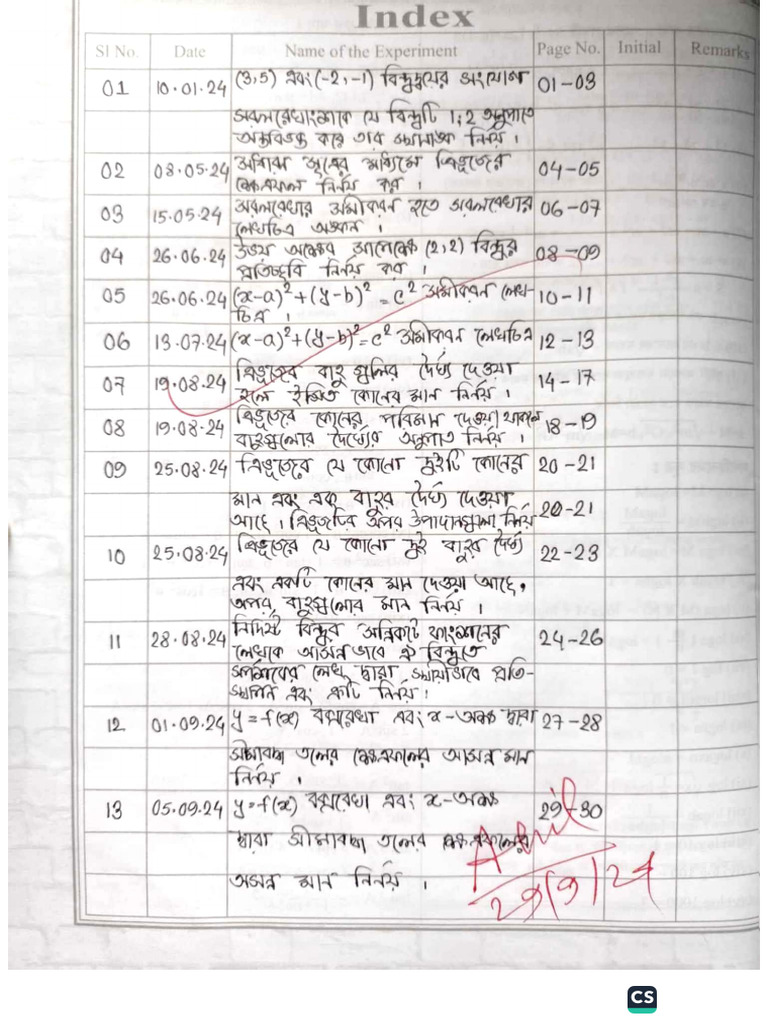 Index
Sl No. Date Name of the Experiment Page No. Initial Remarks
01 10.01.24 (3,5) এবং (-2,-1) বিন্দুদ্বয়ের সংযোগ 01-03
সরলরেখাংশকে যে বিন্দুটি 1:2 অনুপাতে
অন্তর্বিভক্ত করে তার স্থানাঙ্ক নির্ণয় ।
02 08.05.24 সূত্রের মাধ্যমে ত্রিভুজের 04-05
ক্ষেত্রফল নির্ণয় কর ।
03 15.05.24 সরলরেখার সমীকরণ হতে সরলরেখার 06-07
লেখচিত্র অঙ্কন ।
04 26.06.24 উভয় অক্ষের সাপেক্ষে (2,2) বিন্দুর 08-09
প্রতিচ্ছবি নির্ণয় কর ।
05 26.06.24 (x-a)²+(y-b)²=c² সমীকরণ লেখ- 10-11
চিত্র ।
06 13.07.24 (x-a)²+(y-b)²=c² সমীকরণ লেখচিত্র 12-13
07 19.08.24 ত্রিভুজের বাহু গুলির দৈর্ঘ্য দেওয়া 14-17
হলে কোনের মান নির্ণয় ।
08 19.08.24 ত্রিভুজের কোনের পরিমান দেওয়া থাকলে 18-19
বাহুগুলোর দৈর্ঘ্যের অনুপাত নির্ণয় ।
09 25.08.24 ত্রিভুজের যে কোনো দুইটি কোনের 20-21
মান এবং এক বাহুর দৈর্ঘ্য দেওয়া 20-21
আছে । ত্রিভুজটির অপর উপাদানগুলো নির্ণয়
10 25.08.24 ত্রিভুজের যে কোনো দুই বাহুর দৈর্ঘ্য 22-23
এবং একটি কোনের মান দেওয়া আছে,
অপর বাহুগুলোর মান নির্ণয় ।
11 28.08.24 নির্দিষ্ট বিন্দুর সন্নিকটে ফাংশনের 24-26
লেখকে আসন্নভাবে ঐ বিন্দুতে
স্পর্শকের লেখ দ্বারা স্থায়ীভাবে প্রতি-
স্থাপন এবং ত্রুটি নির্ণয় ।
12 01.09.24 y=f(x) বক্ররেখা এবং x-অক্ষ দ্বারা 27-28
সীমাবদ্ধ তলের ক্ষেত্রফলের আসন্ন মান
নির্ণয় ।
13 05.09.24 y=f(x) বক্ররেখা এবং x-অক্ষ 29-30
দ্বারা সীমাবদ্ধ তলের ক্ষেত্রফলের
আসন্ন মান নির্ণয় ।
29/9/24
CS